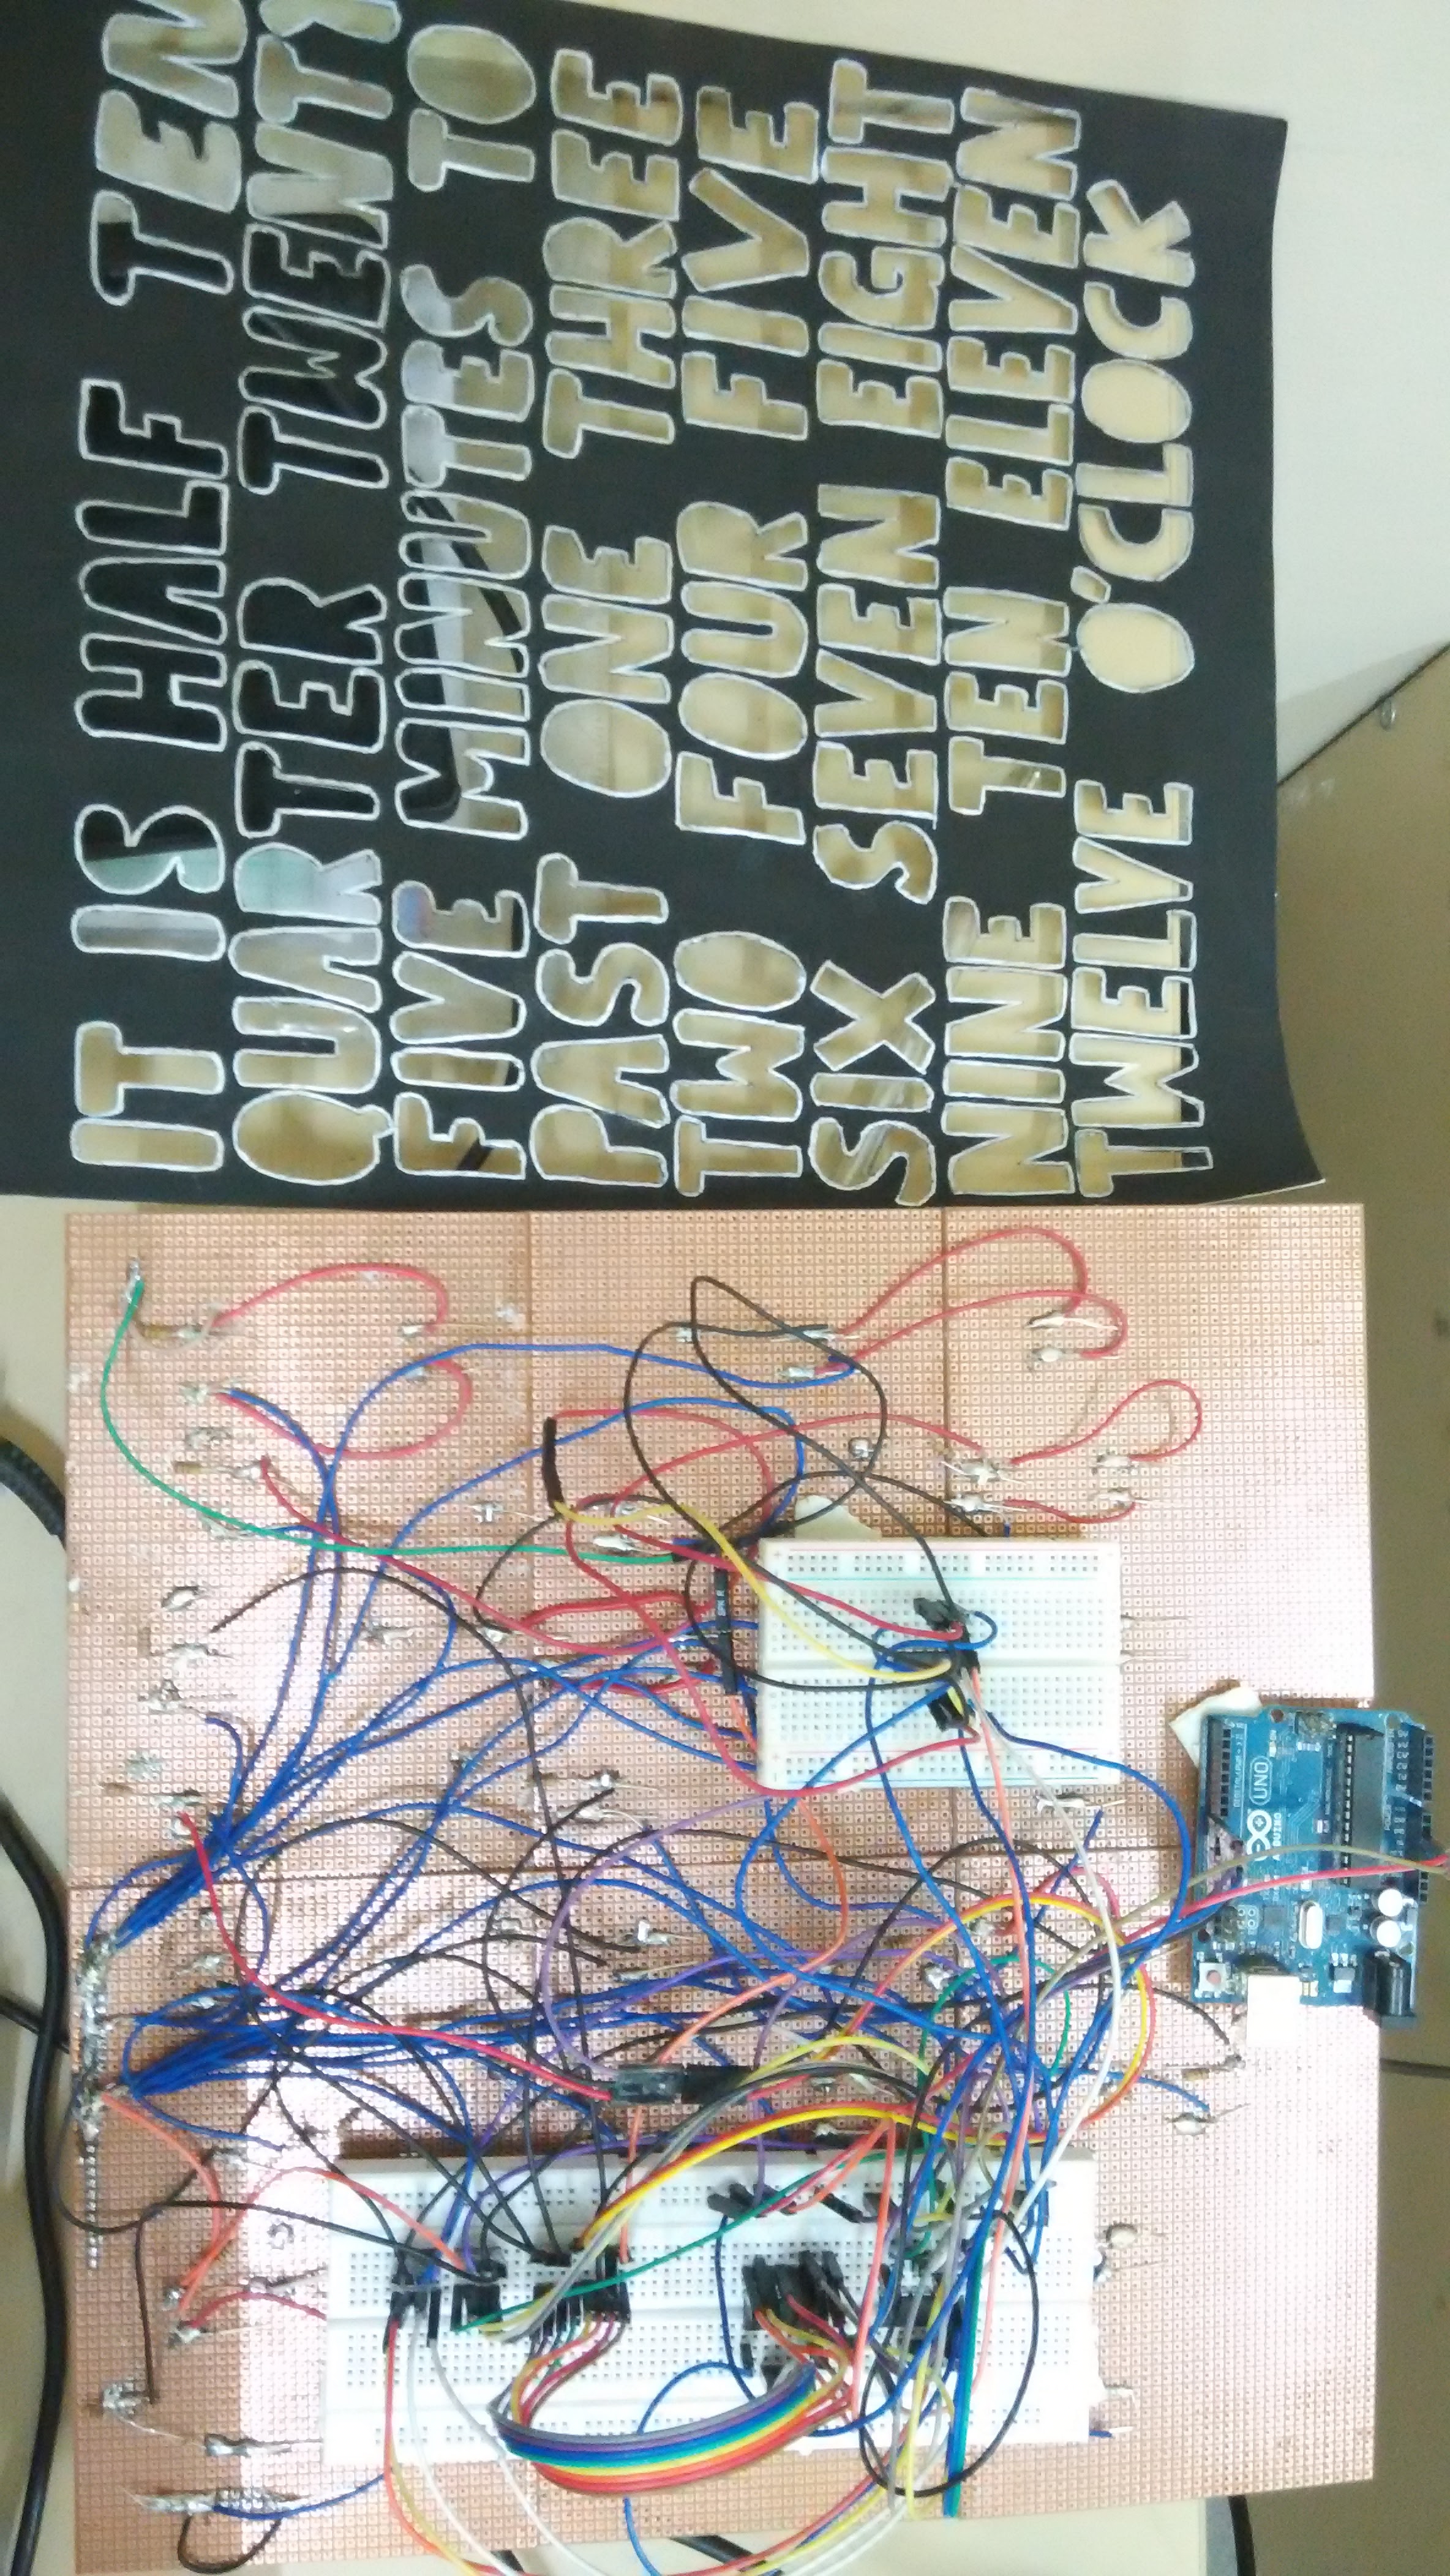 IT IS HALF TEN
QUARTER TWENTY
FIVE MINUTES TO
PAST ONE THREE
TWO FOUR FIVE
SIX SEVEN EIGHT
NINE TEN ELEVEN
TWELVE O'CLOCK
UNO